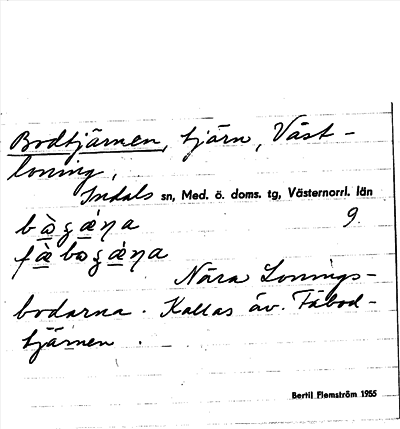 Bodtjärnen, tjärn, Väst-
loning,
Indals sn, Med. ö. doms. tg, Västernorrl. län
9.
Nära Lonings-
bodarna. Kallas äv. Fäbod-
tjärnen.
Bertil Flemström 1955